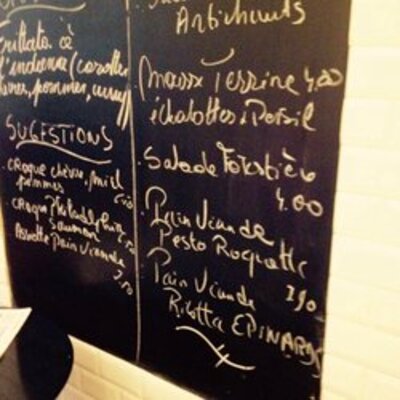 Frittata à
l'indienne (carottes
pommes, curry)
SUGESTIONS
croque chèvre, miel
pommes
croque Philadelphia
Saumon
Assiette Pain Viande
3.50
Artichauts
Maxxx Terrine 4,00
échalottes & Persil
Salade Forestière
4.00
Pain Viande
Pesto Roquette
Pain Viande 3,90
Ricotta EPINARDS